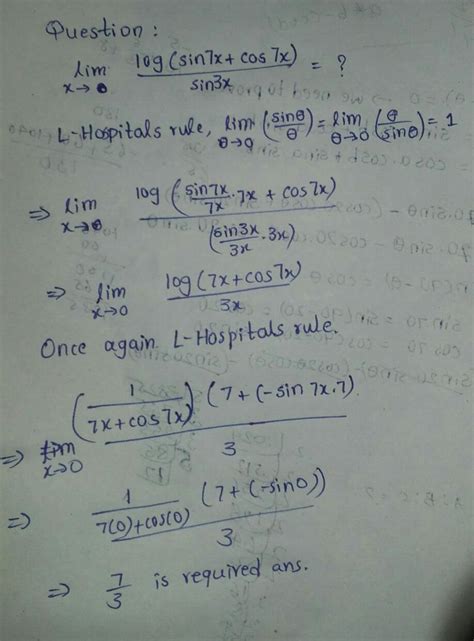 Question :
lim x→0 log (sin7x + cos7x) / sin3x = ?
L-Hospitals rule, lim θ→0 (sinθ/θ) = lim θ→0 (θ/sinθ) = 1
⇒ lim x→0 log (sin7x/7x · 7x + cos7x) / (sin3x/3x · 3x)
⇒ lim x→0 log (7x + cos7x) / 3x
Once again L-Hospitals rule.
⇒ lim x→0 (1/(7x + cos7x)) (7 + (-sin 7x·7) / 3
⇒ 1/(7(0) + cos(0)) (7 + (-sin0)) / 3
⇒ 7/3 is required ans.